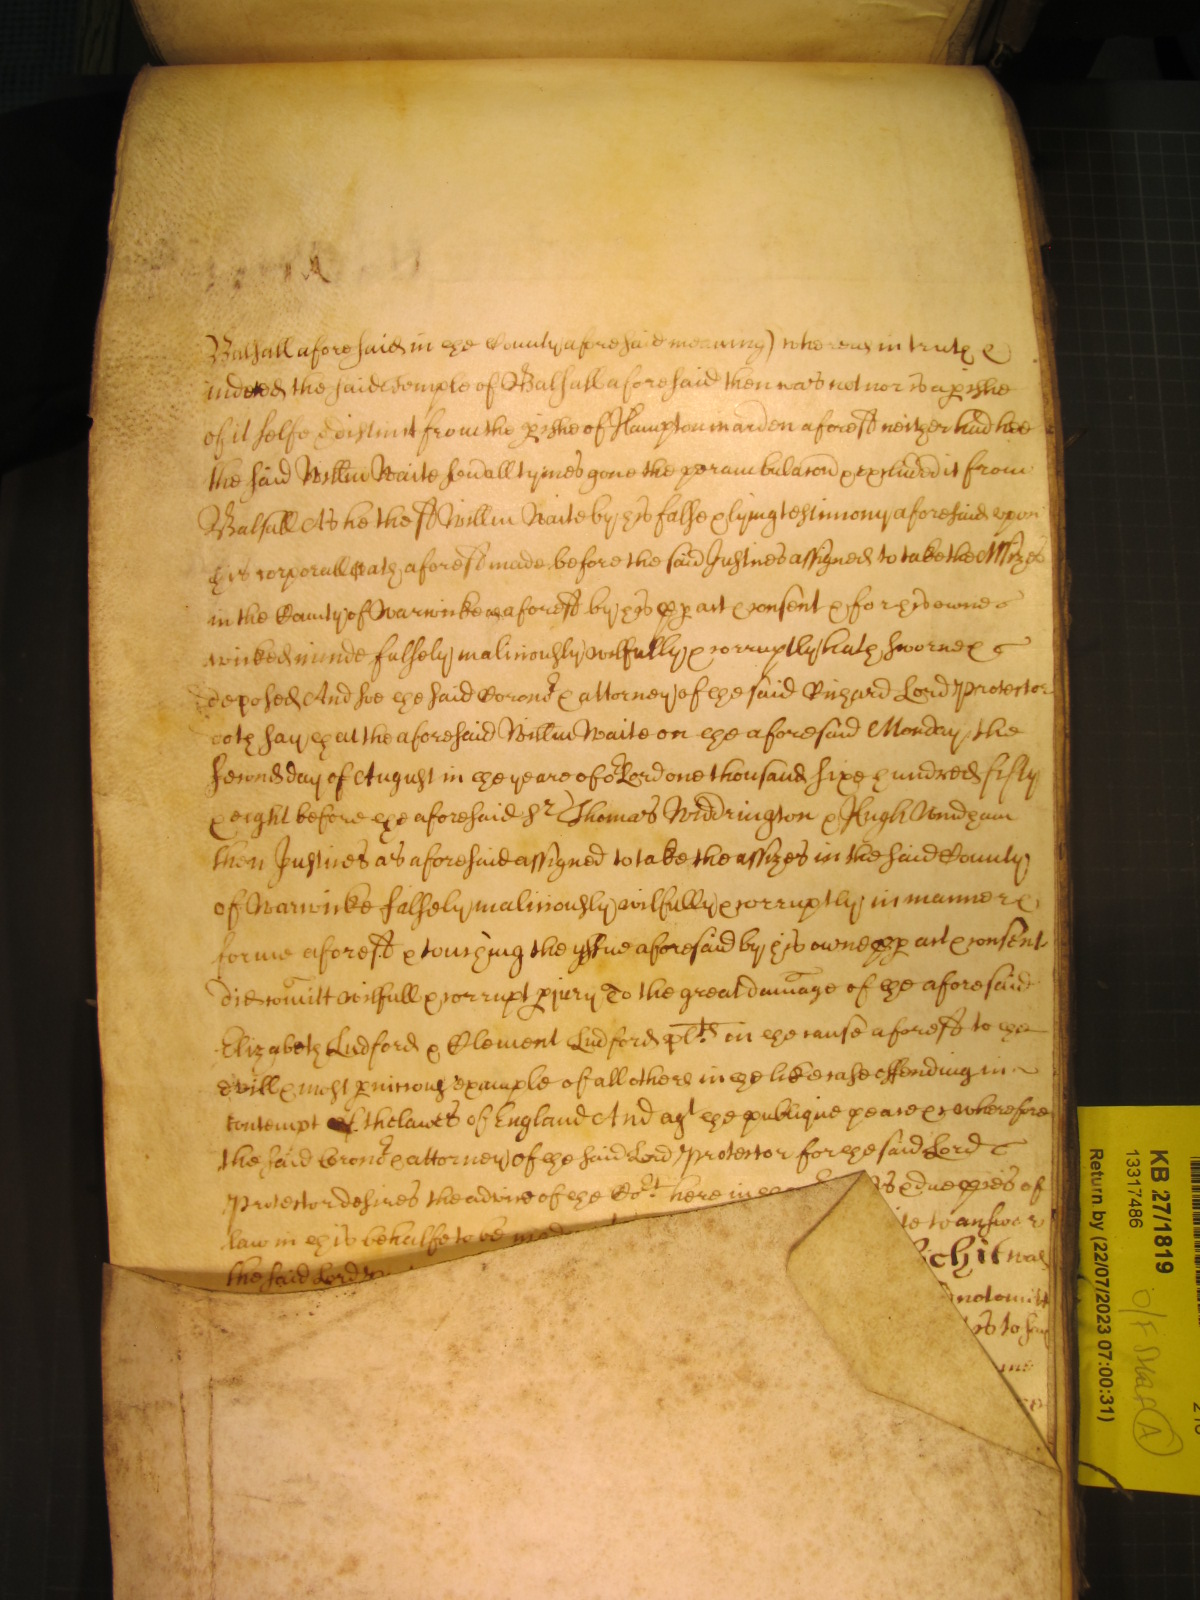 Balsall aforesaid in the County aforesaid meaning) whereas in truth &
indeed the said Temple of Balsall aforesaid then was not nor is a pishe
of it selfe distinct from the pishe of Hampton in arden aforesd neither had hee
the said Willm Waite sevall tymes gone the perambulacon & excluded it from
Balsall As he the sd Willm Waite by his false & lying testimony aforesaid upon
his corporall oath aforesd made before the said Justices assigned to take the Assizes
in the County of Warwicke aforesd by his pp act & consent & for his owne
wicked minde falsely maliciously wilfully & corruptly hath sworne &
deposed And soe the said Coronr & attorney of the said Richard Lord Protector
doth say that the aforesaid Willm Waite on the aforesaid Monday the
second day of August in the yeare of or Lord one thousand sixe hundred fifty
& eight before the aforesaid Sr Thomas Widdrington & Hugh Windham
then Justices as aforesaid assigned to take the assizes in the said County
of Warwicke falsely maliciously wilfully & corruptly in manner &
forme aforesd & touching the yssue aforesaid by his owne pp act & consent
did comitt wilfull & corrupt piury To the great damage of the aforesaid
Elizabeth Ludford & Clement Ludford plts in the cause aforesd to the
evill & most pnicious example of all others in the like case offending in
contempt of the lawes of England And agt the publique peace &c Wherefore
the said Coronr & attorney of the said Lord Protector for the said Lord
Protector desires the advice of the Cort here in & due pces of
law in this behalfe to be made to answer
the said Lord chit was
not omitt
is to say
KB 27/1819
13317486
Return by (22/07/2023 07:00:31)
A